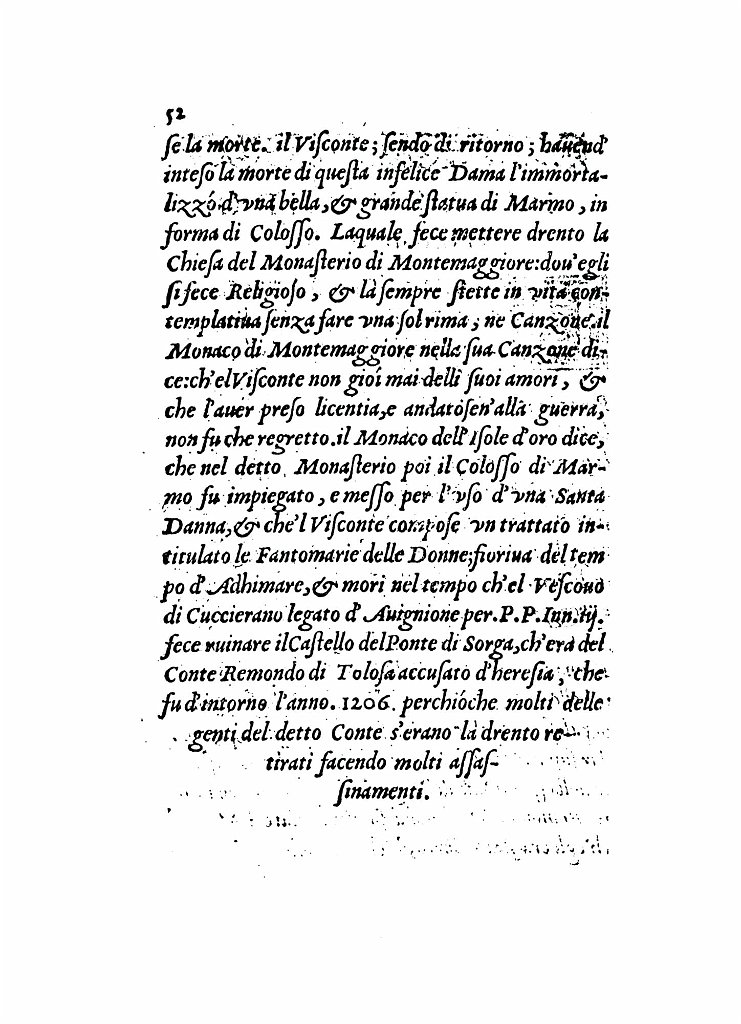 52
ſe la morte. il Viſconte; ſendo di ritorno; hauend'
inteſo la morte di queſta infelice Dama l'immorta-
lizzó d'vna bella, & grande ſtatua di Marmo, in
forma di Coloſſo. Laquale fece mettere drento la
Chieſa del Monaſterio di Montemaggiore:dou'egli
ſi fece Religioſo, & là ſempre ſtette in vita con-
templatiua ſenza fare vna ſol rima, ne Canzone.il
Monaco di Montemaggiore nella ſua Canzone di-
ce:ch'el Viſconte non gioì mai delli ſuoi amori, &
che l'auer preſo licentia,e andatoſen'alla guerra,
non fu che regretto.il Monaco dell'Iſole d'oro dice,
che nel detto Monaſterio poi il Coloſſo di Mar-
mo fu impiegato, e meſſo per l'vſo d'vna Santa
Danna,& che'l Viſconte compoſe vn trattato in-
titulato le Fantomarie delle Donne;fioriua del tem
po d'Adhimare,& mori nel tempo ch'el Veſcouo
di Cuccierano legato d'Auignione per.P.P.Inn.iij.
fece ruinare il Caſtello del Ponte di Sorga,ch'era del
Conte Remondo di Toloſa accuſato d'hereſia, che
fu d'intorno l'anno. 1206. perchióche molti delle
genti del detto Conte s'erano là drento re-
tirati facendo molti aſſaſ-
ſinamenti.